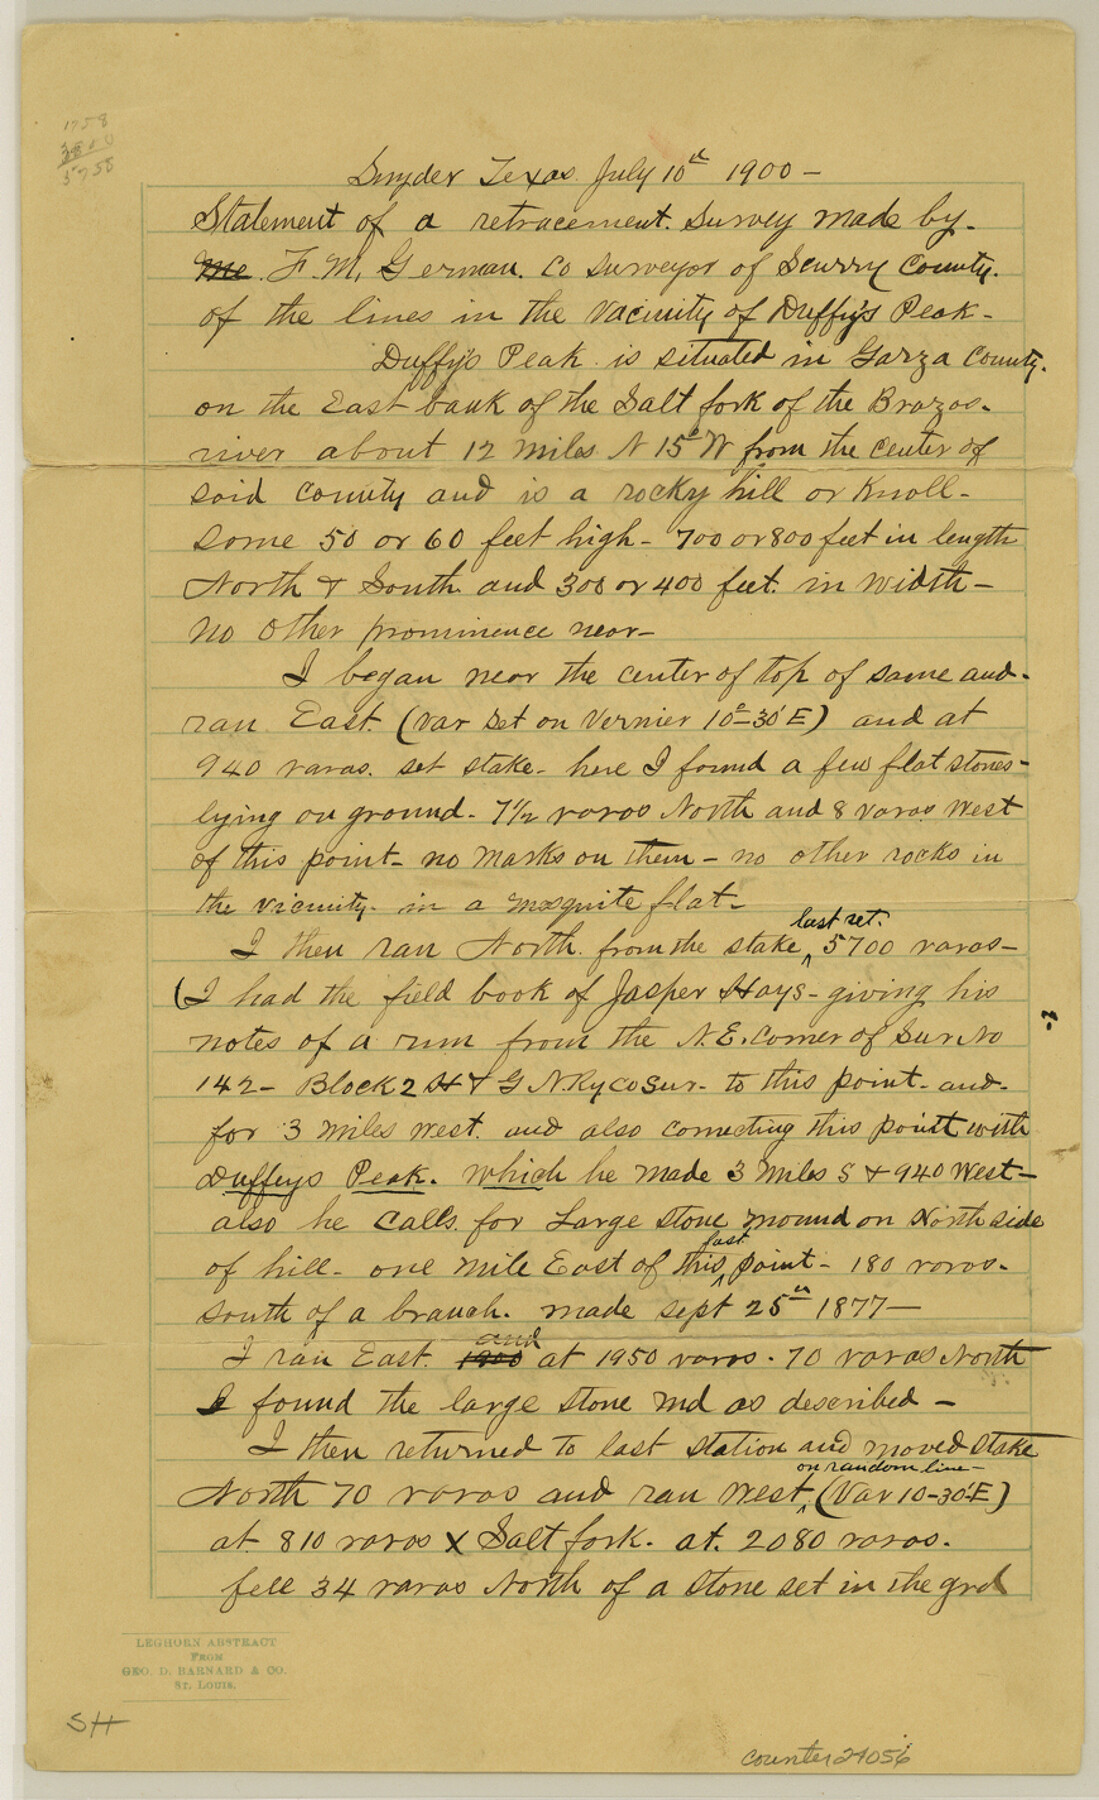 1758
5758
Snyder Texas. July 10th 1900 -
Statement of a retracement. Survey made by.
Me. F. M. German. Co Surveyor of Scurry County.
of the lines in the vacinity of Duffy's Peak -
Duffy's Peak is situated in Garza County.
on the East bank of the Salt fork of the Brazos.
river about 12 miles N 15° W from the center of
said county and is a rocky hill or Knoll -
some 50 or 60 feet high - 700 or 800 feet in length
North & South. and 300 or 400 feet. in width -
no other prominence near -
I began near the center of top of same and -
ran East. (var set on Vernier 10°-30' E) and at
940 varas. set stake - here I found a few flat stones -
lying on ground - 7 1/2 varas North and 8 varas West
of this point - no marks on them - no other rocks in
the vicinity - in a mesquite flat -
I then ran North. from the stake ^ last set. 5700 varas -
(I had the field book of Jasper Hays - giving his
notes of a run from the N.E. Corner of Sur No
142 - Block 2 H & G N. Ry Co Sur - to this point - and -
for 3 miles west. and also connecting this point with
Duffeys Peak. which he made 3 miles S & 940 West -
also he calls for Large stone mound on North side
of hill - one mile East of this ^ last point - 180 varas.
south of a branch. made sept 25th 1877 -
I ran East. 1900 and at 1950 varas. 70 varas North
I found the large stone md as described -
I then returned to last station and moved stake
North 70 varas and ran West ^ on random line - (Var 10-30'-E)
at 810 varas X Salt fork. at. 2080 varas.
fell 34 varas North of a stone set in the grd
LEGHORN ABSTRACT
FROM
GEO. D. BARNARD & CO.
ST. LOUIS.
SH
counter 24056